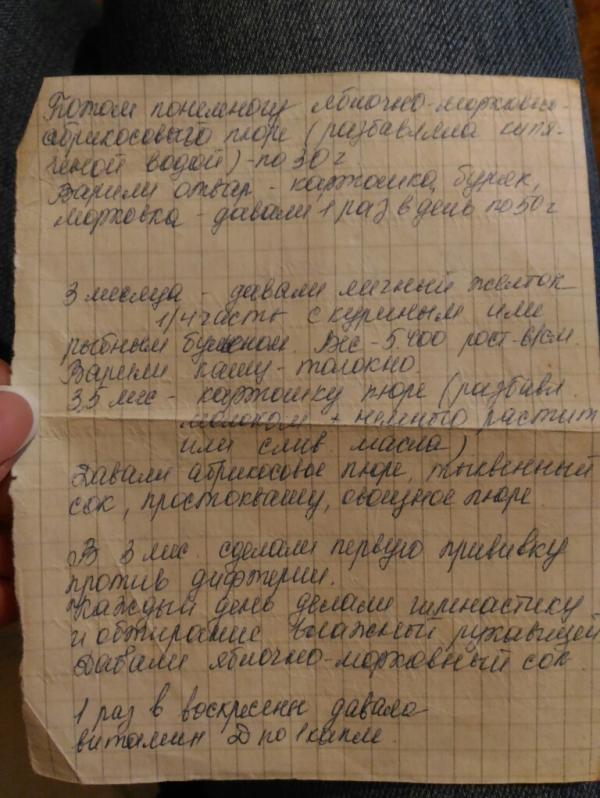 Потом понемногу яблочно-морковно-
абрикосового пюре (разбавляла кипя-
ченой водой) - по 30 г
Варили отвар - картошка, буряк,
морковка - давали 1 раз в день по 50 г
3 месяца - давали яичный желток
1/4 часть с куриным или
рыбным бульоном. Вес - 5.400 рост - 61см.
Варили кашу - толокно.
3,5 мес - картошку пюре (разбавл.
молоком + немного растит
или слив. масла)
Давали абрикосовое пюре, тыквенный
сок, простоквашу, овощное пюре
В 3 мес. сделали первую прививку
против дифтерии.
Каждый день делали гимнастику
и обтирание влажной рукавицей
Давали яблочно-морковный сок.
1 раз в воскресенье давала
витамин Д по 1 капле.